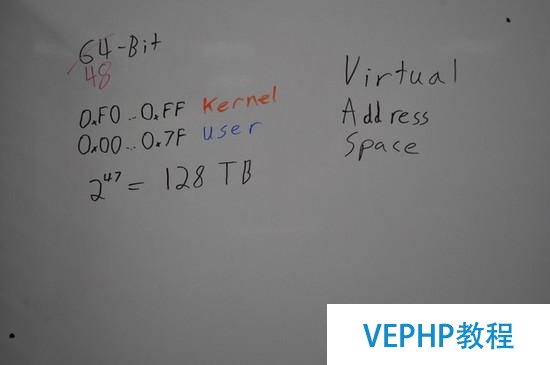 64-Bit
48
0xF0...0xFF Kernel
0x00...0x7F User
2^47 = 128 TB
Virtual
Address
Space
VEPHP教程